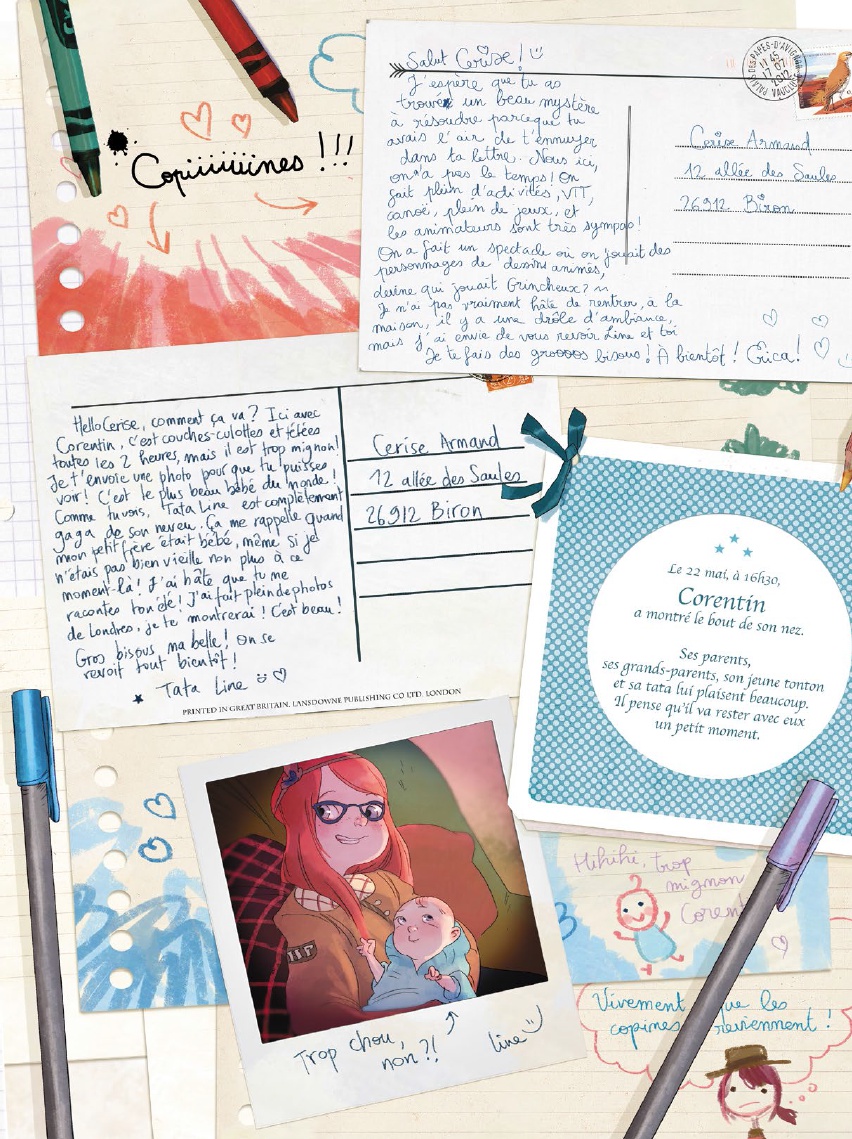 Copiiiiiiines !!!
Salut Cerise !
J'espère que tu as
trouvé un beau mystère
à résoudre parceque tu
avais l'air de t'ennuyer
dans ta lettre. Nous ici,
on n'a pas le temps ! On
fait plein d'activités, VTT,
canoë, plein de jeux, et
les animateurs sont très sympas !
On a fait un spectacle où on jouait des
personnages de dessins animés,
devine qui jouait Grincheux ?
Je n'ai pas vraiment hâte de rentrer, à la
maison, il y a une drôle d'ambiance,
mais j'ai envie de vous revoir Line et toi
Je te fais des groooos bisous ! À bientôt ! Erica !
PALAIS DES PAPES-D'AVIGNON
17 07
2012
VAUCLUSE
Cerise Armand
12 allée des Saules
26912 Biron
Hello Cerise, comment ça va ? Ici avec
Corentin, c'est couches-culottes et tétées
toutes les 2 heures, mais il est trop mignon !
Je t'envoie une photo pour que tu puisses
voir ! C'est le plus beau bébé du monde !
Comme tu vois, Tata Line est complètement
gaga de son neveu. Ça me rappelle quand
mon petit frère était bébé, même si je
n'étais pas bien vieille non plus à ce
moment-là ! J'ai hâte que tu me
racontes ton été ! J'ai fait plein de photos
de Londres, je te montrerai ! C'est beau !
Gros bisous, ma belle ! On se
revoit tout bientôt !
Tata Line
Cerise Armand
12 allée des Saules
26912 Biron
PRINTED IN GREAT BRITAIN. LANSDOWNE PUBLISHING CO LTD. LONDON
Le 22 mai, à 16h30,
Corentin
a montré le bout de son nez.
Ses parents,
ses grands-parents, son jeune tonton
et sa tata lui plaisent beaucoup.
Il pense qu'il va rester avec eux
un petit moment.
Trop chou,
non ?!
Line
Hihihi, trop
mignon
Corent
Vivement que les
copines reviennent !